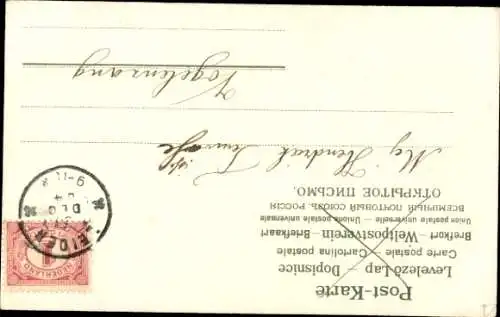 Post-Karte
Levelező-Lap — Dopisnice
Carte postale — Cartolina postale
Brefkort — Weltpostverein — Briefkaart
Union postale universelle — Unione postale universale
ВСЕМІРНЫЙ ПОЧТОВЫЙ СОЮЗЪ. РОССІЯ
ОТКРЫТОЕ ПИСЬМО.
Mej Hendrik
Vogelenzang
LEIDEN
DEC
04
9-11
NEDERLAND
1